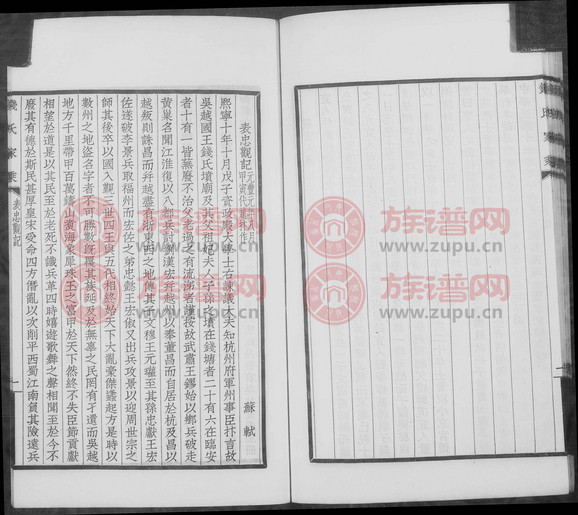 表忠觀記
蘇軾
熙寧十年十月戊子資政殿大學士右諫議大夫知杭州府軍州事臣抃言故
吳越國王錢氏墳廟及其父祖妃夫人子孫之墳在錢塘者二十有六在臨安
者十有一皆蕪廢不治父老過之有流涕者謹按故武肅王鏐始以鄉兵破走
黃巢名聞江淮復以八都兵討劉漢宏幷越州以奉董昌而自居於杭及昌以
越叛則誅昌而幷越盡有浙東西之地傳其子文穆王元瓘至其孫忠獻王宏
佐遂破李景兵取福州而宏佐之弟忠懿王宏俶又出兵攻景以迎周世宗之
師其後卒以國入覲三世四王與五代相終始天下大亂豪傑蠭起方是時以
數州之地盜名字者不可勝數旣覆其族延及於無辜之民罔有孑遺而吳越
地方千里帶甲百萬鑄山煑海象犀珠玉之富甲於天下然終不失臣節貢獻
相望於道是以其民至於老死不識兵革四時嬉遊歌舞之聲相聞至於今不
廢其有德於斯民甚厚皇宋受命四方僭亂以次削平西蜀江南負其險遠兵
錢氏家乘
表忠觀記
一
族谱网
www.zupu.cn
族谱网
www.zupu.cn
族谱网
www.zupu.cn
族谱网
www.zupu.cn